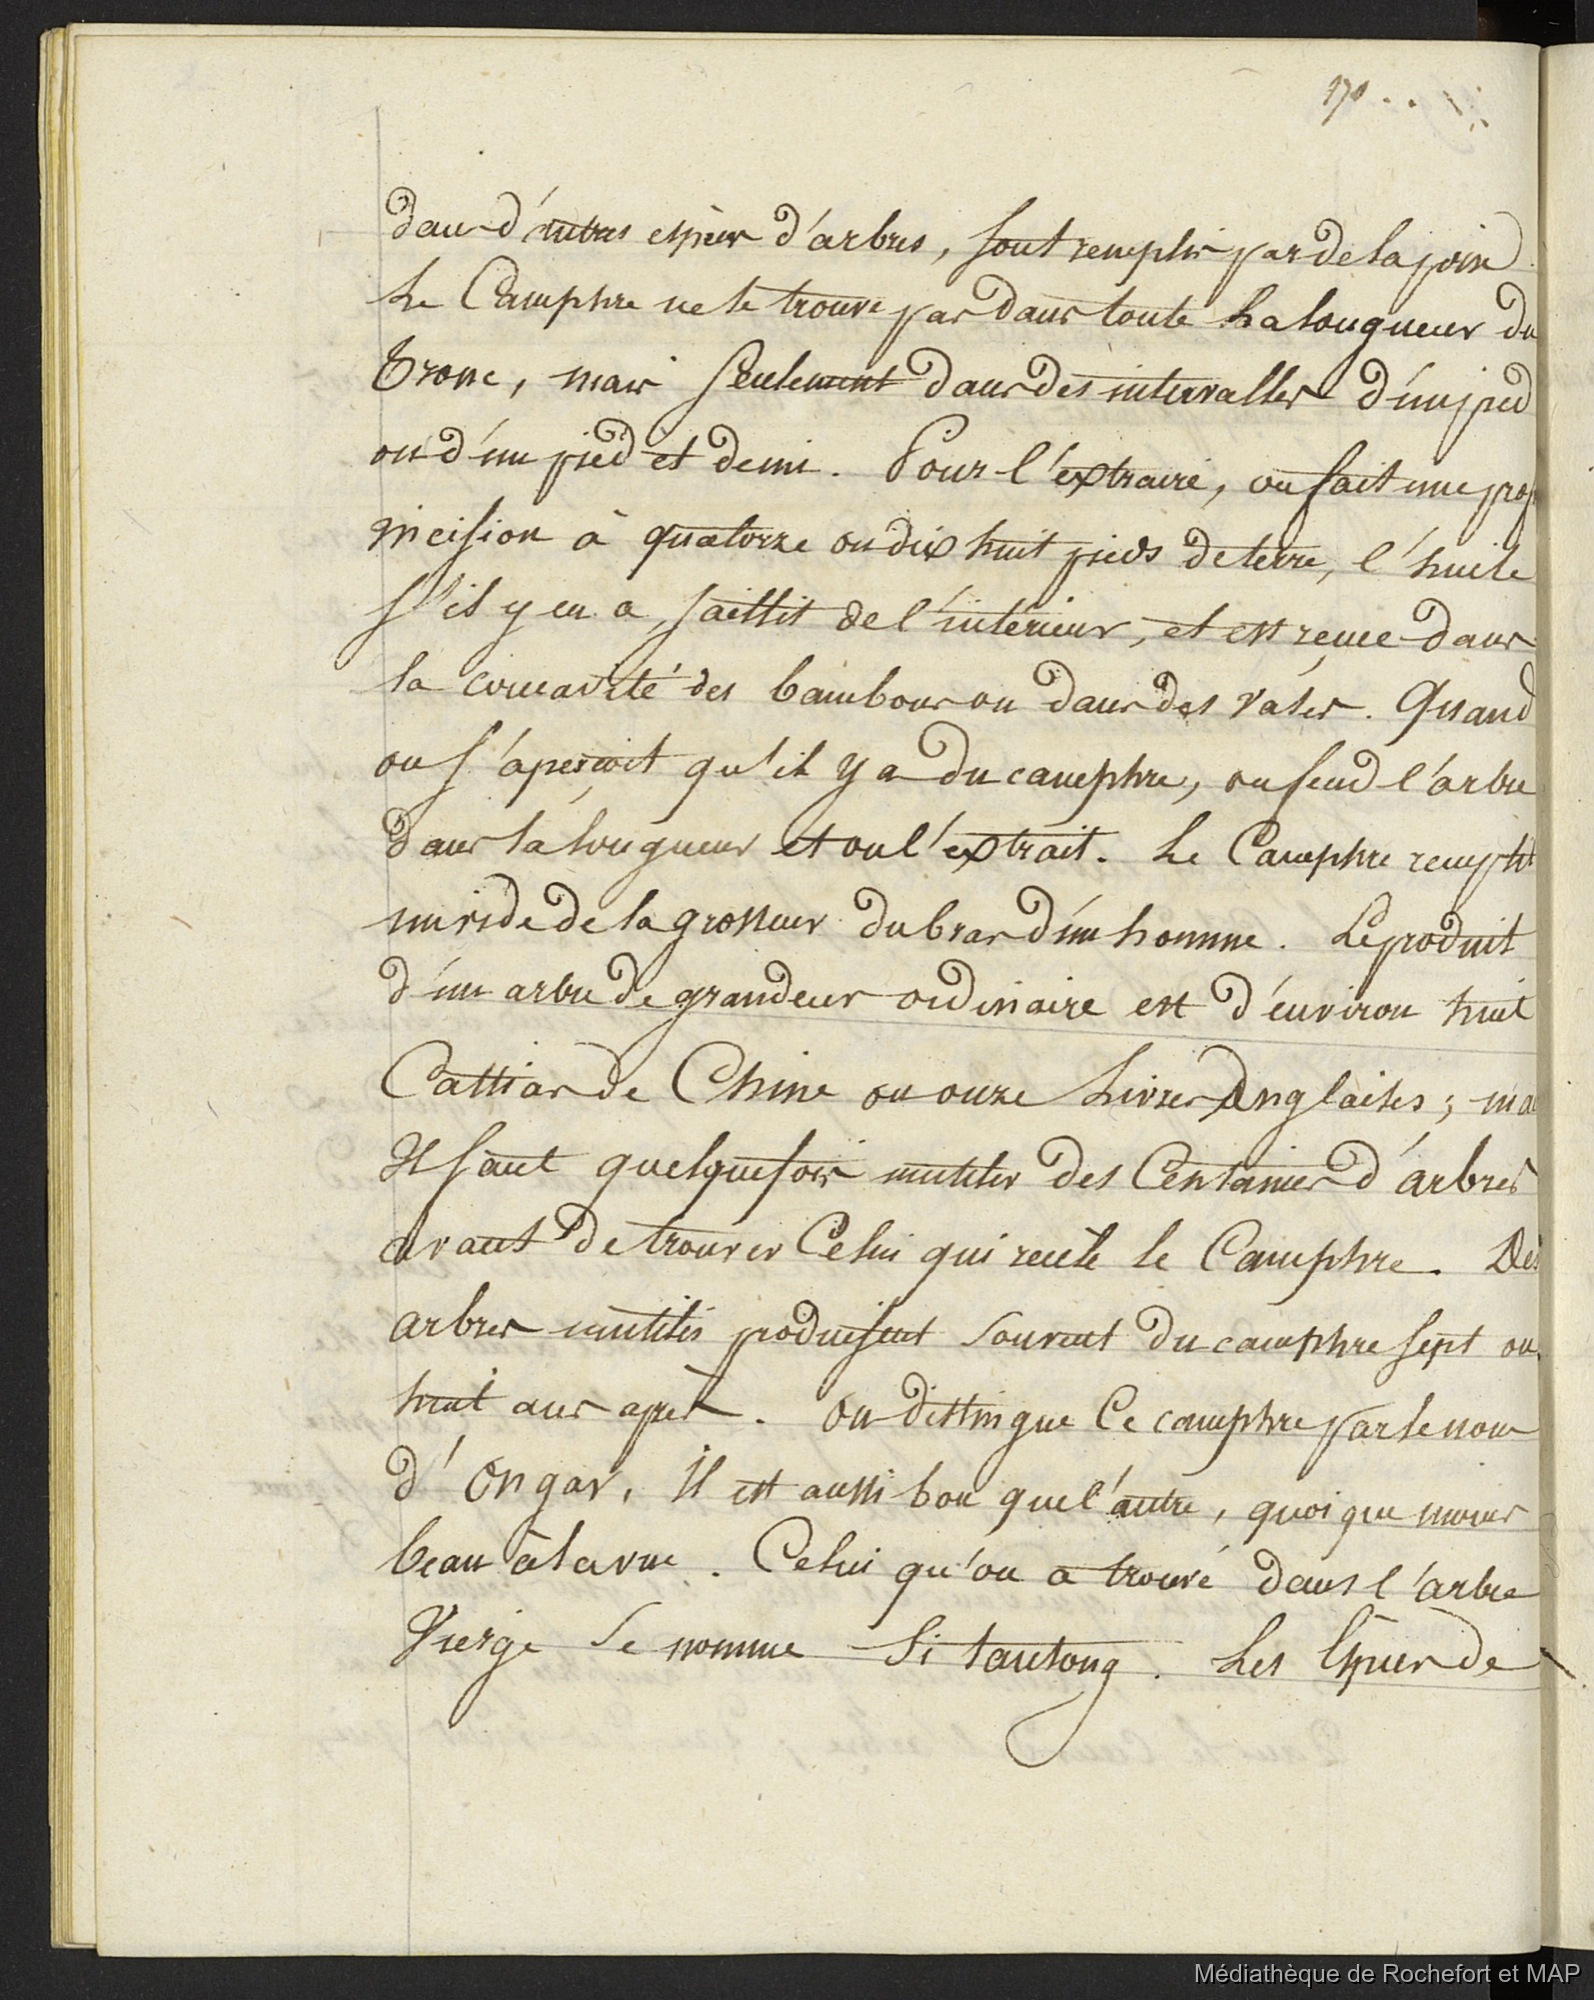 170..
dans d'autres espèces d'arbres, sont remplis par de la poix
Le Camphre ne se trouve pas dans toute La longueur du
Tronc, mais seulement dans des intervalles d'un pied
ou d'un pied et demi. Pour l'extraire, on fait une prof
incision à quatorze ou dix huit pieds de terre, l'huile
s'il y en a, saillit de l'intérieur, et est reçue dans
la concavité des bambous ou dans des vases. Quand
on s'aperçoit qu'il y a du camphre, on fend l'arbre
dans sa longueur et on l'extrait. Le Camphre remplit
un vide de la grosseur du bras d'un homme. Le produit
d'un arbre de grandeur ordinaire est d'environ huit
Cattias de Chine ou onze Livres Anglaises; ma
Il faut quelquefois mutiler des Centaines d'arbres
avant de trouver Celui qui recèle le Camphre. Des
arbres mutilés produisent souvent du camphre sept ou
huit ans après. On distingue Ce camphre par le nom
d'Ongar, Il est aussi bon que l'autre, quoique moins
beau à la vue. Celui qu'on a trouvé dans l'arbre
Vierge se nomme Si tantong. Les Epies de
Médiathèque de Rochefort et MAP